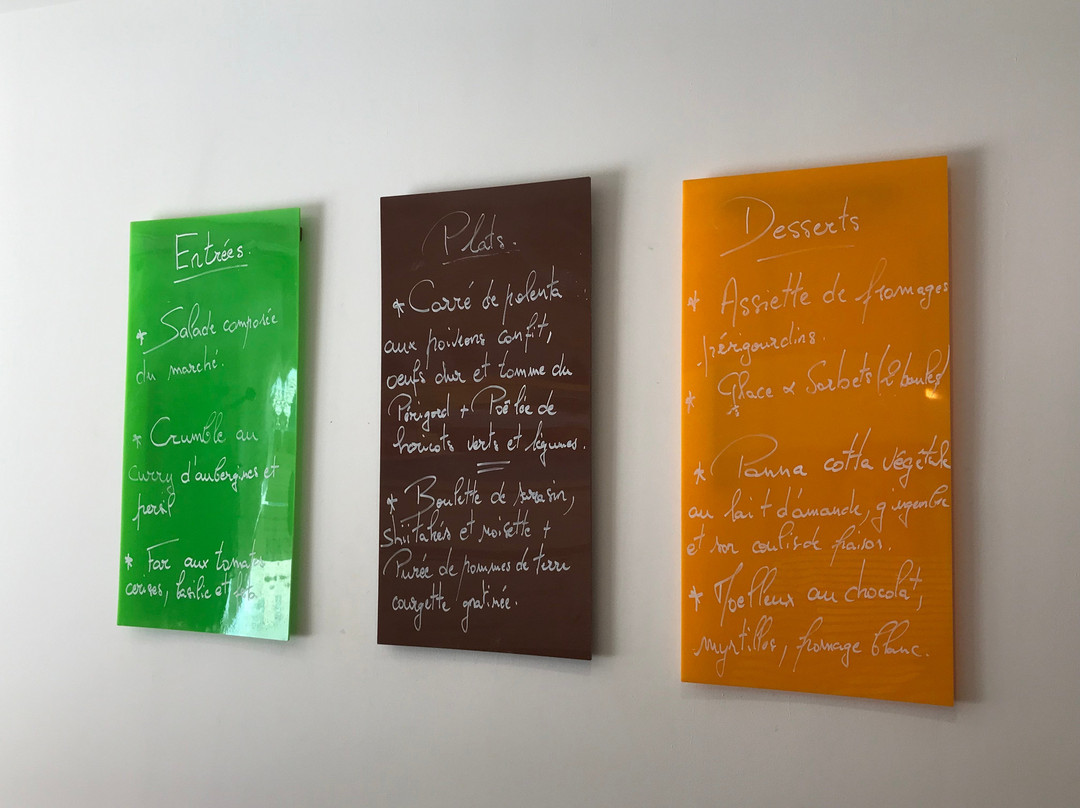 Entrées.
* Salade composée
du marché.
* Crumble au
curry d'aubergines et
persil
* Far aux tomates
cerises, basilic et feta
Plats.
* Carré de polenta
aux poivrons confit,
oeufs dur et tomme du
Périgord + Poêlée de
haricots verts et légumes.
* Boulette de sarrasin,
shiitakés et noisette +
Purée de pommes de terre
courgette gratinée.
Desserts
* Assiette de fromages
périgourdins.
* Glace & Sorbets (2 boules)
* Panna cotta végétale
au lait d'amande, gingembre
et son coulis de fraises.
* Moelleux au chocolat,
myrtilles, fromage blanc.